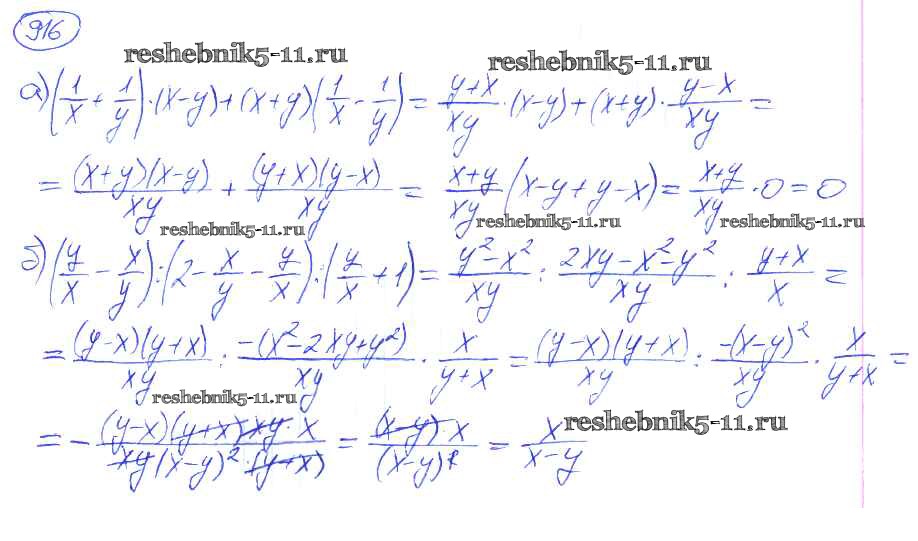 916
reshebnik5-11.ru reshebnik5-11.ru
а) (1/x + 1/y)·(x-y)+(x+y)(1/x - 1/y) = (y+x)/(xy) ·(x-y)+(x+y)· (y-x)/(xy) =
= ((x+y)(x-y))/(xy) + ((y+x)(y-x))/(xy) = (x+y)/(xy) (x-y+y-x) = (x+y)/(xy) ·0=0
reshebnik5-11.ru reshebnik5-11.ru reshebnik5-11.ru
б) (y/x - x/y):(2- x/y - y/x):(y/x +1) = (y²-x²)/(xy) : (2xy-x²-y²)/(xy) : (y+x)/x =
= ((y-x)(y+x))/(xy) : (-(x²-2xy+y²))/(xy) · x/(y+x) = ((y-x)(y+x))/(xy) : (-(x-y)²)/(xy) · x/(y+x) =
reshebnik5-11.ru
= - ((y-x)(y+x)xy·x)/(xy(x-y)²·(y+x)) = ((x-y)·x)/((x-y)²) = x/(x-y)
reshebnik5-11.ru